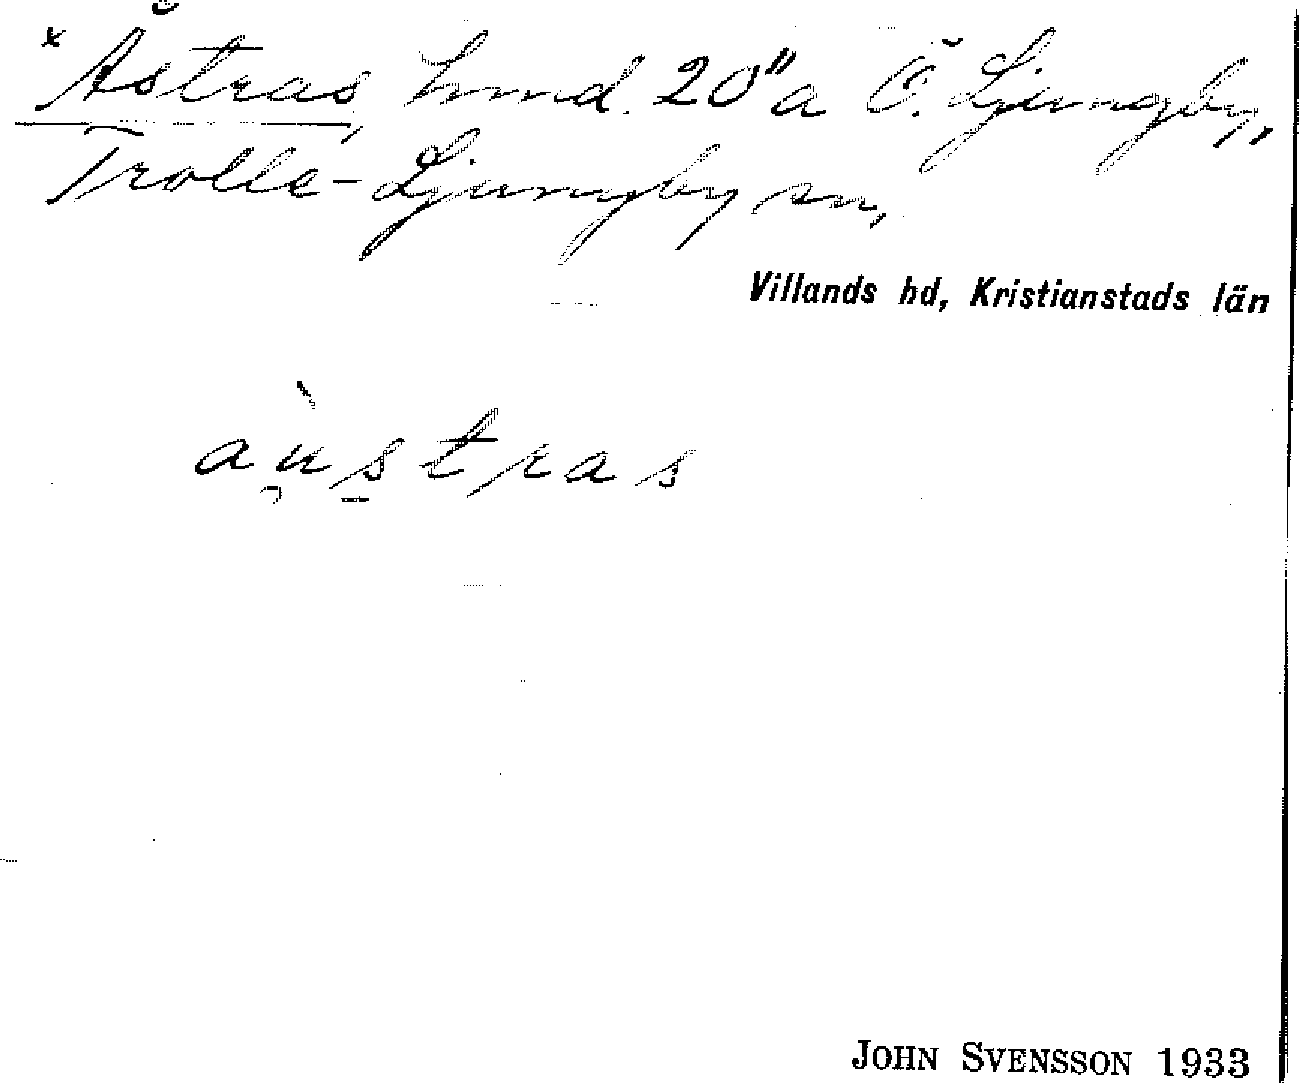 × Åstras, hmd. 20" a Ö. Ljungby,
Trolle-Ljungby sn,
Villands hd, Kristianstads län
àu̯s̱tras
JOHN SVENSSON 1933